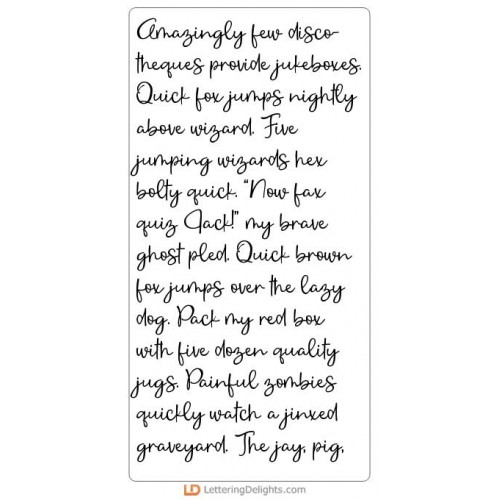 Amazingly few disco-
theques provide jukeboxes.
Quick fox jumps nightly
above wizard. Five
jumping wizards hex
bolty quick. "Now fax
quiz Jack!" my brave
ghost pled. Quick brown
fox jumps over the lazy
dog. Pack my red box
with five dozen quality
jugs. Painful zombies
quickly watch a jinxed
graveyard. The jay, pig,
LD LetteringDelights.com